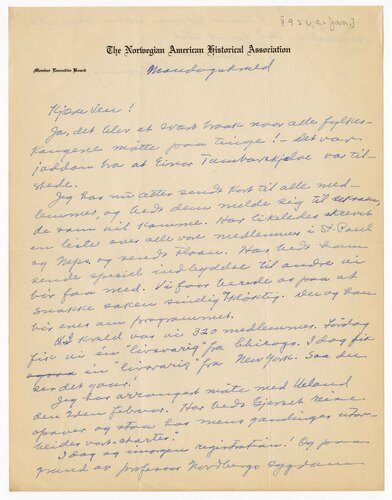 1926, c. Jan.
The Norwegian American Historical Association
Member Executive Board
Mandagskveld
Kjære Ven!
Ja, det blev et svært braak naar alle fylkes-
kongene møtte paa tinge! – Det var
jaddan bra at Einar Tambarskjelve var til-
stede.
Jeg har nu atter sendt kort til alle med-
lemmer, og bedt dem melde sig til
de som vil komme. Har likeledes skrevet
en liste over alle vor medlemmer i St. Paul
og Mpls. og sendt Hoan. Har bedt ham
sende speciel indbydelse til andre vi
bør faa med. Vi faar berede os paa at
snakke saken sindig kløktig. Den og han
bør enes om programmet.
Nu kveld var vi 320 medlemmer. Lørdag
fik vi en "livsvarig" fra Chicago. I dag fik
en "livsvarig" fra New York. Saa du
ser det gaar!
Jeg har arrangert møte med Ueland
den 2den februar. Har bedt Gjerset reise
opover og stanse hos mens
vort "charter."
I dag og imorgen registration! Og paa
grund av professor Nordbergs sygdom